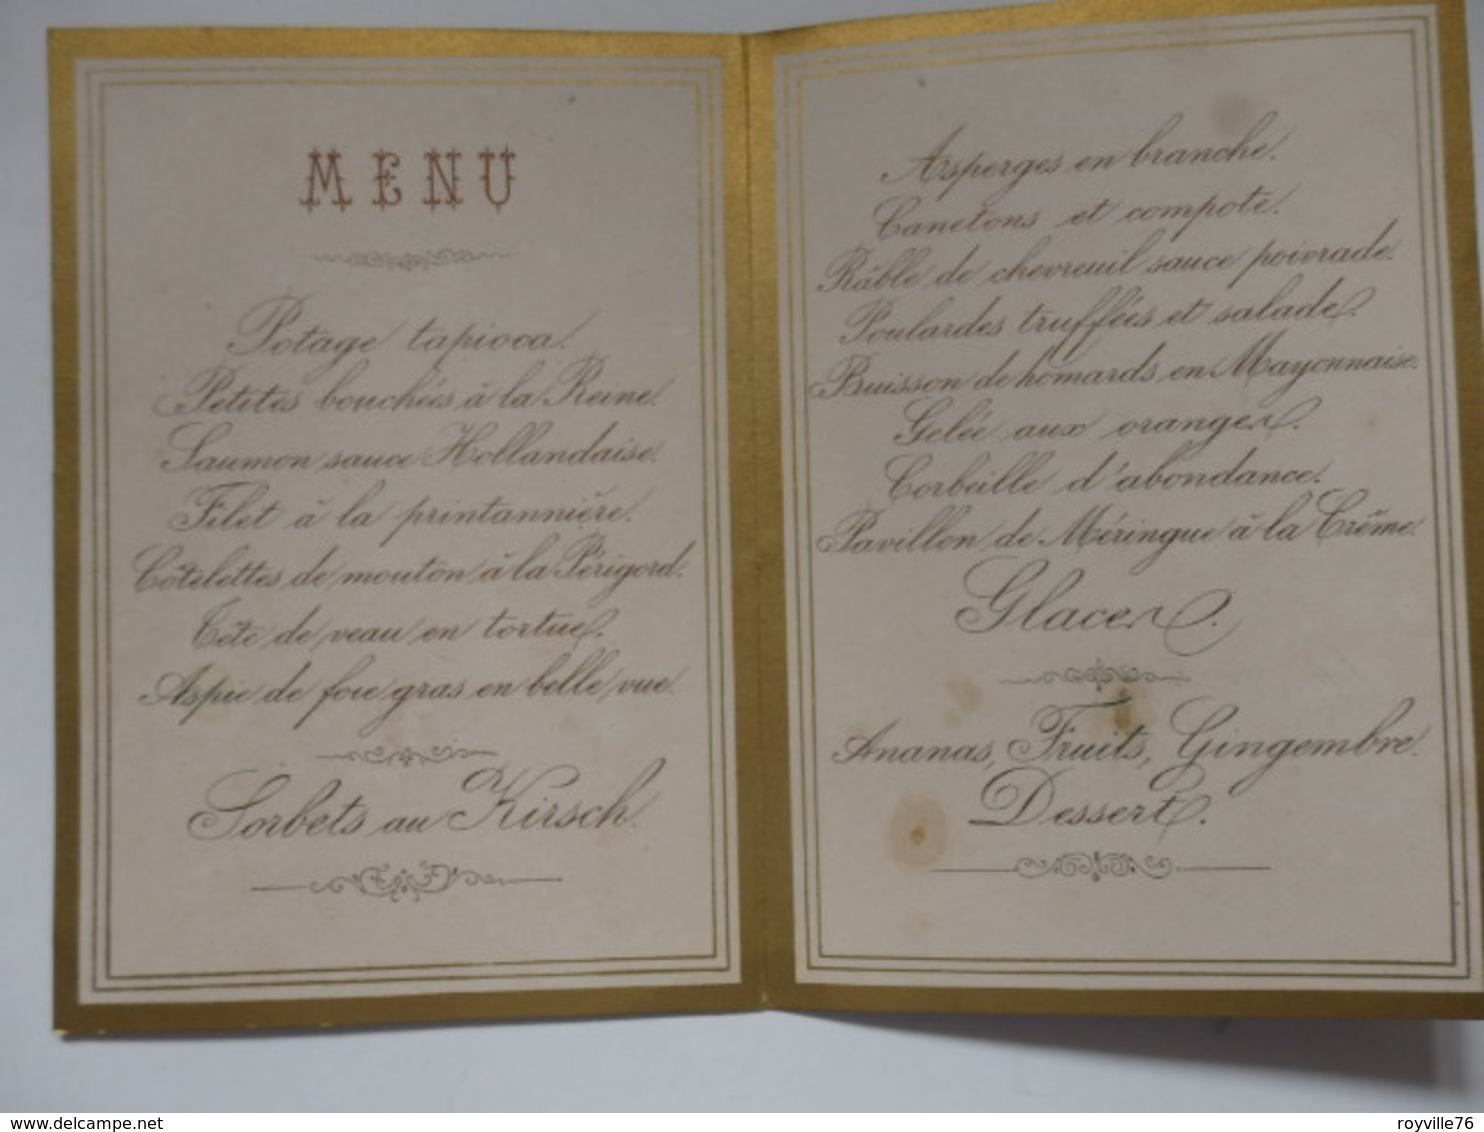 MENU
Potage tapioca.
Petites bouchées à la Reine.
Saumon sauce Hollandaise.
Filet à la printannière.
Côtelettes de mouton à la Périgord.
Tête de veau en tortue.
Aspic de foie gras en belle vue.
Sorbets au Kirsch.
Asperges en branche.
Canetons et compote.
Râble de chevreuil sauce poivrade.
Poulardes truffées et salade.
Buisson de homards en Mayonnaise.
Gelée aux oranges.
Corbeille d'abondance.
Pavillon de Méringue à la Crême.
Glaces.
Ananas, Fruits, Gingembre.
Dessert.
www.delcampe.net
royville76